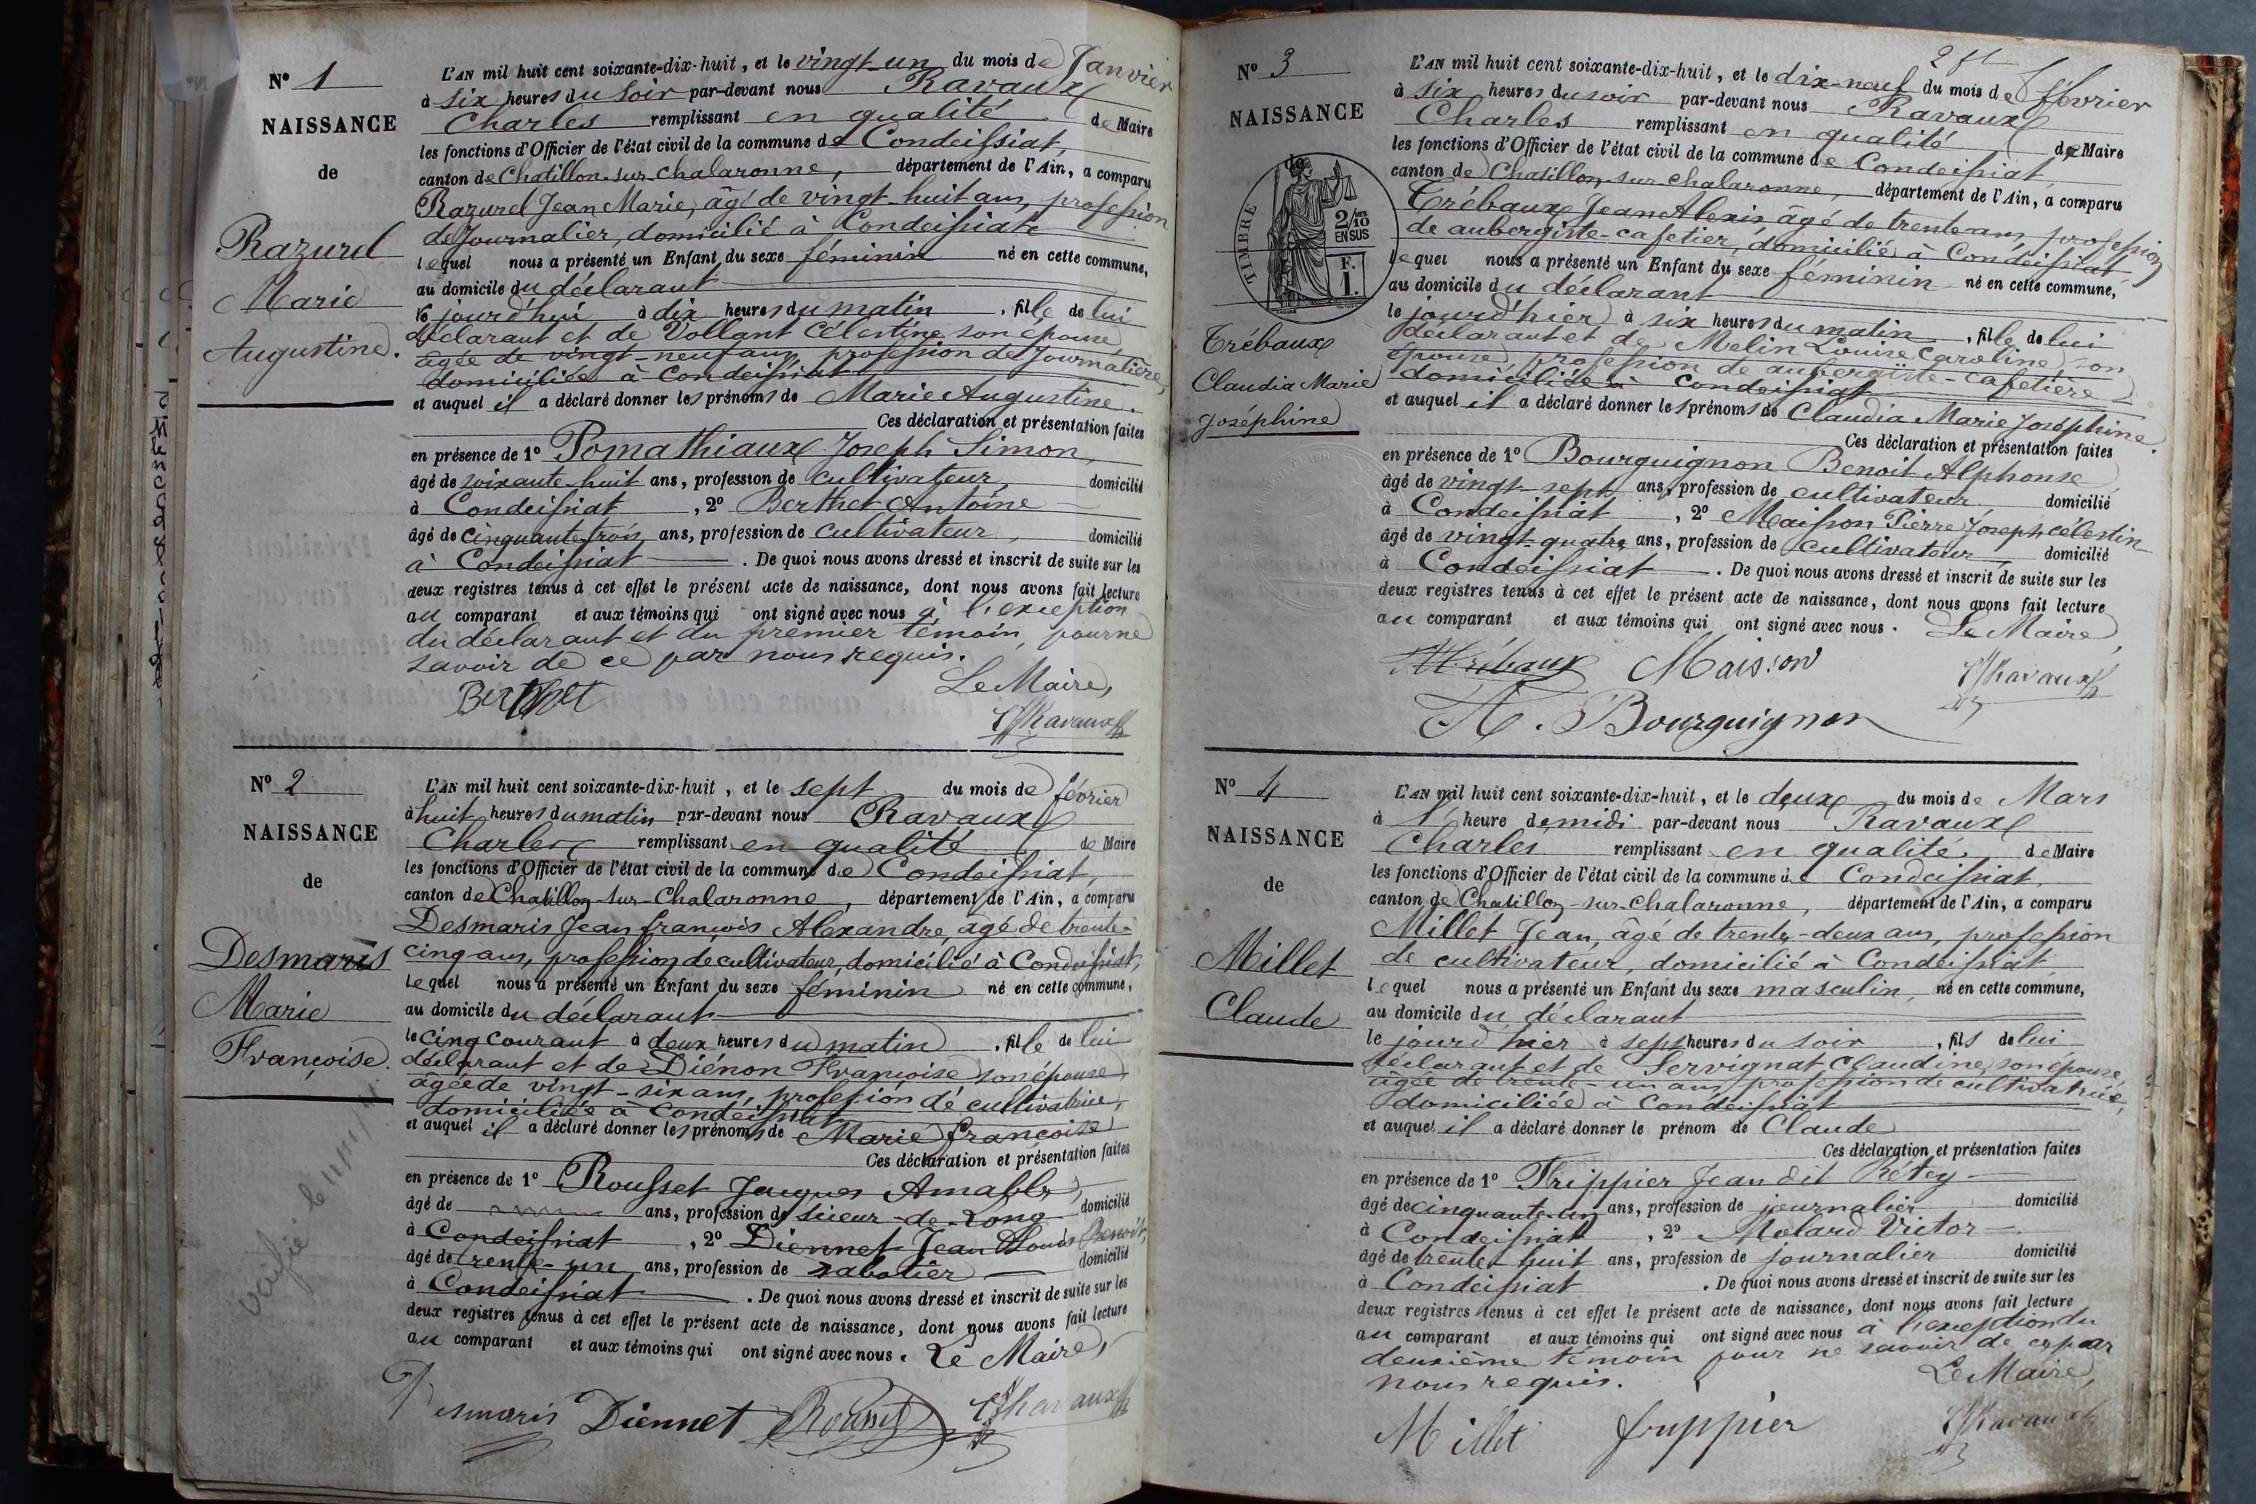 N° 1
NAISSANCE
de
Razurel
Marie
Augustine.
L'AN mil huit cent soixante-dix-huit, et le vingt-un du mois de Janvier
à six heures du soir par-devant nous Ravaux
Charles remplissant en qualité de Maire
les fonctions d'Officier de l'état civil de la commune de Condeissiat,
canton de Chatillon-sur-Chalaronne, département de l'Ain, a comparu
Razurel Jean Marie, âgé de vingt-huit ans, profession
de Journalier, domicilié à Condeissiat
lequel nous a présenté un Enfant du sexe féminin né en cette commune,
au domicile du déclarant
jourd'hui à dix heures du matin, fille de lui
déclarant et de Vollant Célestine son épouse,
âgée de vingt-neuf ans, profession de Journalière,
domiciliée à Condeissiat
et auquel il a déclaré donner les prénoms de Marie Augustine.
Ces déclaration et présentation faites
en présence de 1° Pomathiaux Joseph Simon,
âgé de soixante huit ans, profession de cultivateur, domicilié
à Condeissiat, 2° Berthet Antoine
âgé de cinquante trois ans, profession de cultivateur, domicilié
à Condeissiat. De quoi nous avons dressé et inscrit de suite sur les
deux registres tenus à cet effet le présent acte de naissance, dont nous avons fait lecture
au comparant et aux témoins qui ont signé avec nous à l'exception
du déclarant et du premier témoin, pour ne
savoir de ce par nous requis.
Le Maire,
Berthet
Ravaux
N° 2
NAISSANCE
de
Desmaris
Marie
Françoise.
L'AN mil huit cent soixante-dix-huit, et le sept du mois de février
à huit heures du matin par-devant nous Ravaux
Charles remplissant en qualité de Maire
les fonctions d'Officier de l'état civil de la commune de Condeissiat,
canton de Chatillon-sur-Chalaronne, département de l'Ain, a comparu
Desmaris Jean françois Alexandre, âgé de trente-
cinq ans, profession de cultivateur, domicilié à Condeissiat,
lequel nous a présenté un Enfant du sexe féminin né en cette commune,
au domicile du déclarant
le cinq courant à deux heures du matin, fille de lui
déclarant et de Diénon Françoise son épouse,
âgée de vingt-six ans, profession de cultivatrice,
domiciliée à Condeissiat
et auquel il a déclaré donner les prénoms de Marie françoise
Ces déclaration et présentation faites
en présence de 1° Rousset Jacques Amable,
âgé de ans, profession de scieur-de-long domicilié
à Condeissiat, 2° Diennet Jean Louis Benoit,
âgé de trente-un ans, profession de sabotier domicilié
à Condeissiat. De quoi nous avons dressé et inscrit de suite sur les
deux registres tenus à cet effet le présent acte de naissance, dont nous avons fait lecture
au comparant et aux témoins qui ont signé avec nous. Le Maire,
Desmaris Diennet Rousset Ravaux
N° 3
NAISSANCE
de
TIMBRE
2/10
EN SUS
F.
1.
Trébaux
Claudia Marie
Joséphine
L'AN mil huit cent soixante-dix-huit, et le dix-neuf du mois de février
à six heures du soir par-devant nous Ravaux
Charles remplissant en qualité de Maire
les fonctions d'Officier de l'état civil de la commune de Condeissiat
canton de Chatillon-sur-Chalaronne, département de l'Ain, a comparu
Trébaux Jean Alexis âgé de trente ans, profession
de aubergiste-cafetier, domicilié à Condeissiat
lequel nous a présenté un Enfant du sexe féminin né en cette commune,
au domicile du déclarant
le jourd'hier à six heures du matin, fille de lui
déclarant et de Melin Louise Caroline, son
épouse, profession de aubergiste-cafetière
domiciliée à Condeissiat
et auquel il a déclaré donner les prénoms de Claudia Marie Joséphine.
Ces déclaration et présentation faites
en présence de 1° Bourguignon Benoit Alphonse
âgé de vingt-sept ans, profession de cultivateur domicilié
à Condeissiat, 2° Maisson Pierre Joseph célestin
âgé de vingt-quatre ans, profession de cultivateur, domicilié
à Condeissiat. De quoi nous avons dressé et inscrit de suite sur les
deux registres tenus à cet effet le présent acte de naissance, dont nous avons fait lecture
au comparant et aux témoins qui ont signé avec nous. Le Maire,
Trébaux Maisson Ravaux
A. Bourguignon
N° 4
NAISSANCE
de
Millet
Claude
L'AN mil huit cent soixante-dix-huit, et le deux du mois de Mars
à 1 heure de midi par-devant nous Ravaux
Charles remplissant en qualité de Maire
les fonctions d'Officier de l'état civil de la commune de Condeissiat,
canton de Chatillon-sur-Chalaronne, département de l'Ain, a comparu
Millet Jean, âgé de trente-deux ans, profession
de cultivateur, domicilié à Condeissiat
lequel nous a présenté un Enfant du sexe masculin, né en cette commune,
au domicile du déclarant
le jourd'hier à sept heures du soir, fils de lui
déclarant et de Servignat Claudine, son épouse,
âgée de trente-un ans, profession de cultivatrice,
domiciliée à Condeissiat
et auquel il a déclaré donner le prénom de Claude
Ces déclaration et présentation faites
en présence de 1° Frippier Jean dit Rétey
âgé de cinquante-un ans, profession de journalier domicilié
à Condeissiat, 2° Molard Victor
âgé de trente-huit ans, profession de journalier domicilié
à Condeissiat. De quoi nous avons dressé et inscrit de suite sur les
deux registres tenus à cet effet le présent acte de naissance, dont nous avons fait lecture
au comparant et aux témoins qui ont signé avec nous à l'exception du
deuxième témoin pour ne savoir de ce par
nous requis.
Le Maire,
Millet frippier Ravaux